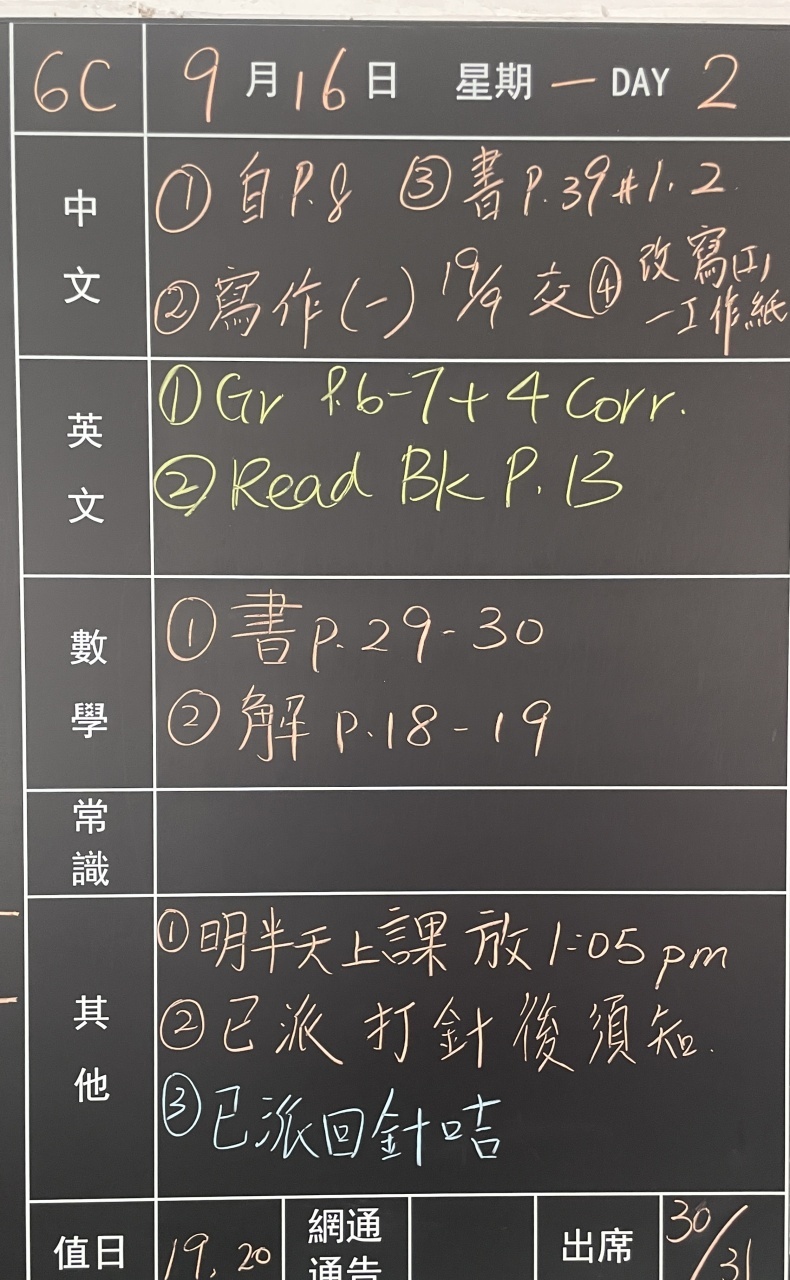 6C 9月16日 星期一 DAY 2
中文
① 自P.8 ③ 書P.39#1.2
② 寫作(一) 19/9 交 ④ 改寫(工)
一工作紙
英文
① Gr P.6-7+4 Corr.
② Read Bk P.13
數學
① 書p.29-30
② 解p.18-19
常識
其他
① 明半天上課 放1:05pm
② 已派 打針後須知.
③ 已派回針咭
值日 19, 20 網通通告 出席 30/31